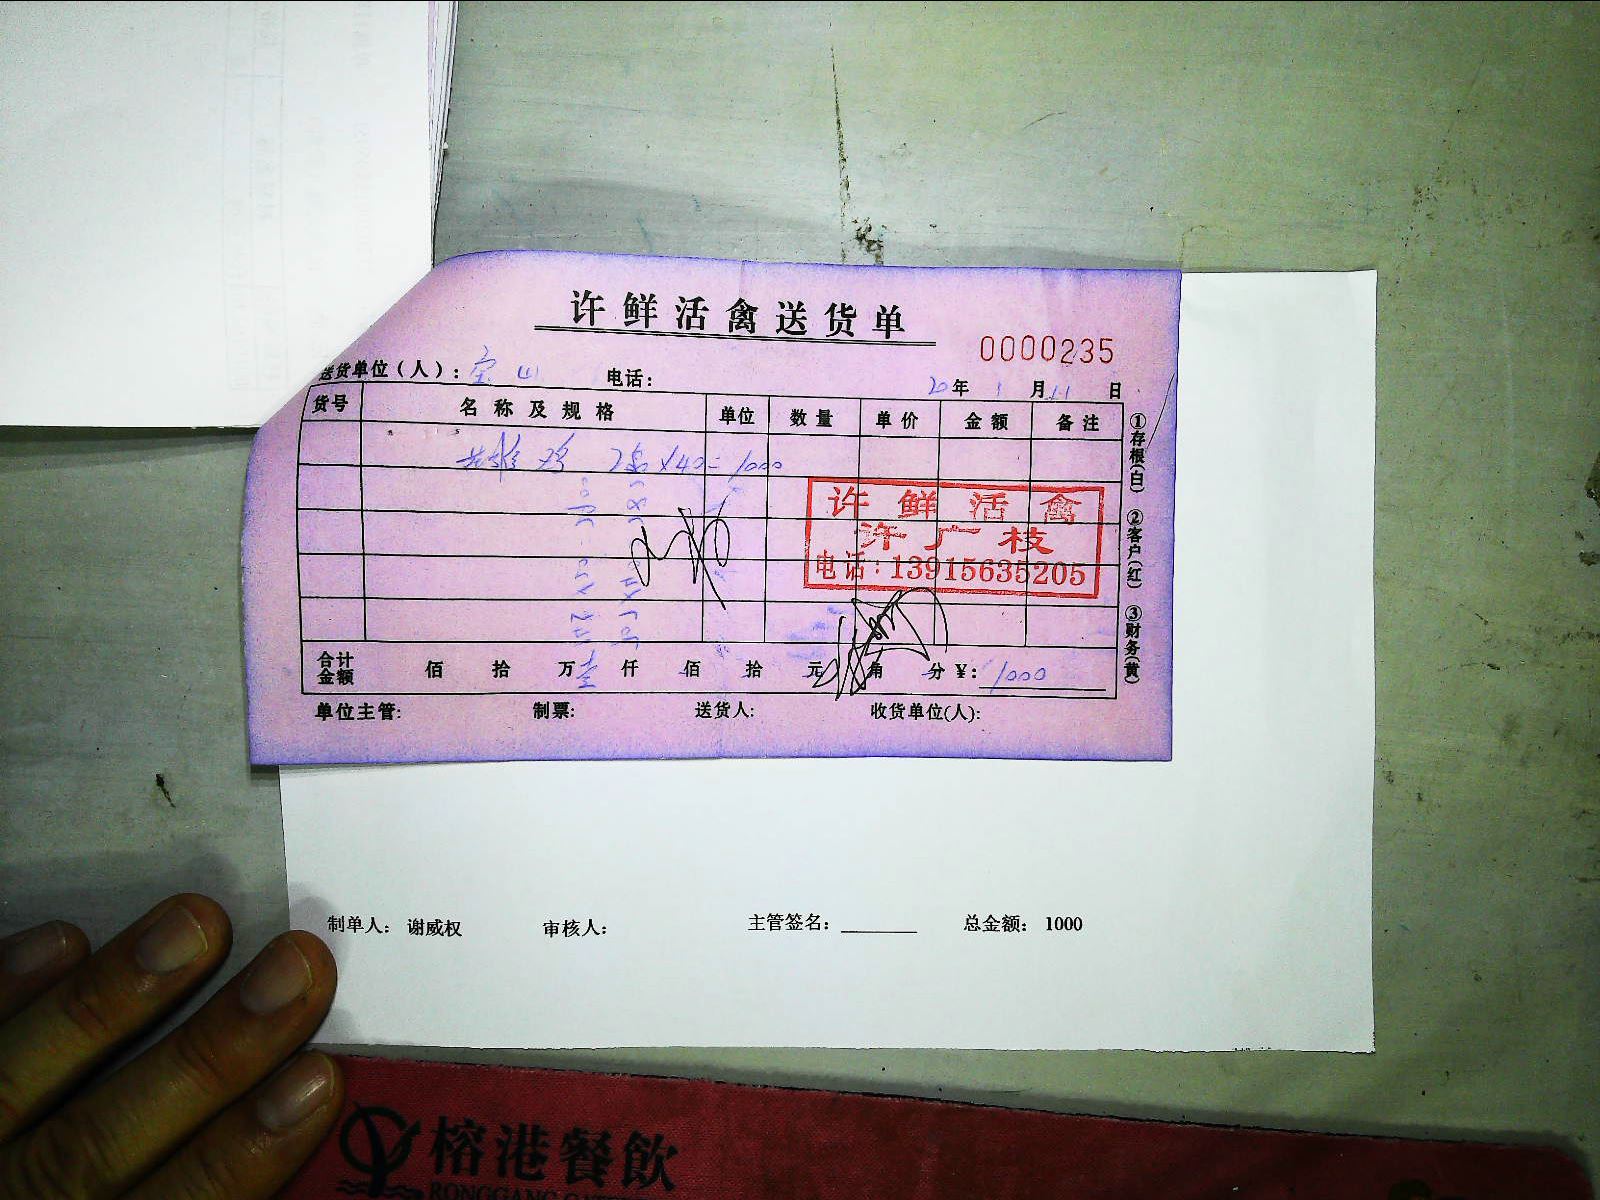 许鲜活禽送货单
0000235
送货单位(人): 宝山 电话: 20年 1 月 11 日
货号 名称及规格 单位 数量 单价 金额 备注
鸡 25×40=1000
许鲜活禽
许广枝
电话:13915635205
①存根(白) ②客户(红) ③财务(黄)
合计金额 佰 拾 万 壹 仟 佰 拾 元 角 分 ¥: 1000
单位主管: 制票: 送货人: 收货单位(人):
制单人: 谢威权 审核人: 主管签名: 总金额: 1000
榕港餐飲